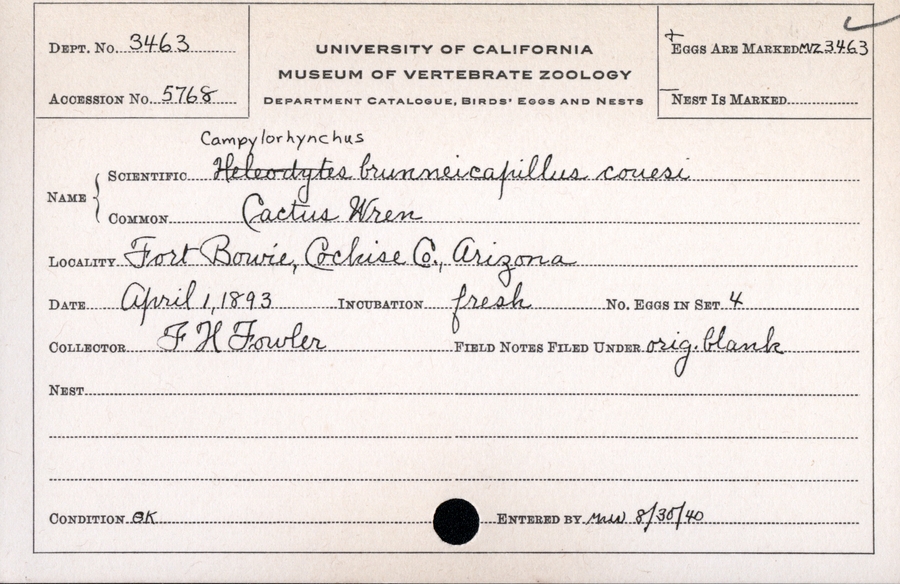 DEPT. NO. 3463
ACCESSION NO. 5768
UNIVERSITY OF CALIFORNIA
MUSEUM OF VERTEBRATE ZOOLOGY
DEPARTMENT CATALOGUE, BIRDS' EGGS AND NESTS
EGGS ARE MARKED MVZ 3463
NEST IS MARKED
Campylorhynchus
NAME
SCIENTIFIC Heleodytes brunneicapillus couesi
COMMON Cactus Wren
LOCALITY Fort Bowie, Cochise Co., Arizona
DATE April 1, 1893 INCUBATION fresh NO. EGGS IN SET 4
COLLECTOR F H Fowler FIELD NOTES FILED UNDER orig. blank
NEST
CONDITION OK ENTERED BY 8/30/40